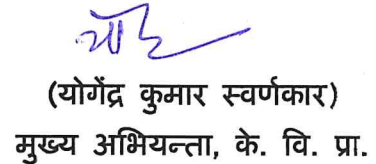 (योगेंद्र कुमार स्वर्णकार)
मुख्य अभियन्ता, के. वि. प्रा.